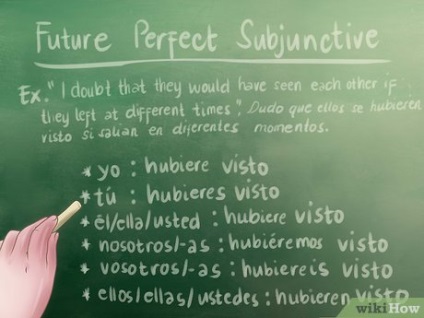 Future Perfect Subjunctive
Ex. "I doubt that they would have seen each other if
they left at different times", Dudo que ellos se hubieren
visto si salian en diferentes momentos.
* yo : hubiere visto
* tú : hubieres visto
* él/ella/usted : hubiere visto
* nosotros/-as : hubiéremos visto
* vosotros/-as : hubiereis visto
* ellos/ellas/ustedes : hubieren visto
wikiHow